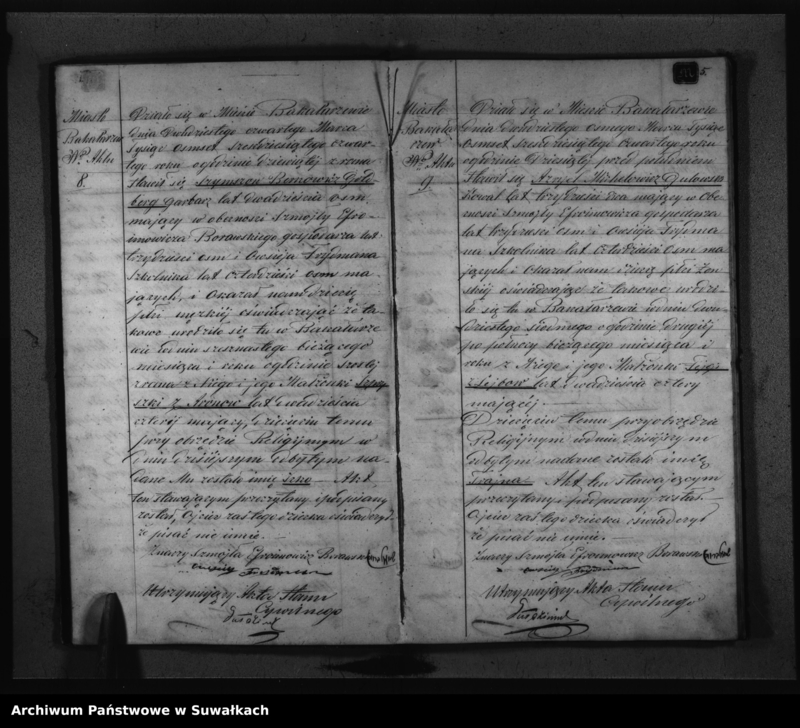 Miasto
Bakałarzew
Nro Aktu
8.
Działo się w Mieście Bakałarzewie
dnia Dwudziestego czwartego Marca
tysiąc osmset sześćdziesiątego czwar-
tego roku o godzinie dziewiątej z rana
stawił się Szymszon Berkowicz Gold-
berg Garbarz lat dwadzieścia osm
mający w obecności Szmojły Efro-
imowicza Borawskiego gospodarza lat
trzydzieści osm i Owsieja Fajmana
Szkolnika lat czterdzieści osm ma-
jących, i okazał nam dziecię
płci męskiej oświadczając że ta-
kowe urodziło się tu w Bakałarze-
wie w dniu szesnastego bieżącego
miesiąca i roku o godzinie szóstej
z rana z Niego i jego Małżonki
z Aronów lat dwadzieścia
cztery mający, Dziecięciu temu
przy obrzędzie Religijnym w
dniu dzisiejszym odbytym na-
dane Mu zostało imię Icko — Akt
ten stawającym przeczytany i podpisany
został, Ojciec zaś tego dziecka oświadczył
że pisać nie umie. —
Znaczy Szmojła Efroimowicz Borawski
Utrzymujący Akta Stanu
Cywilnego
5.
Miasto
Bakałar
zew
Nro Aktu
9.
Działo się w Mieście Bakałarzewie
dnia Dwudziestego osmego Marca tysiąc
osmset sześćdziesiątego czwartego roku
o godzinie dziesiątej przed południem
stawił się Michelowicz
Kowal lat trzydzieści dwa mający w Obe-
cności Szmojły Efroimowicza gospodarza
lat trzydzieści osm i Owsieja Fajma
na Szkolnika lat czterdzieści osm ma
jących i okazał nam dziecię płci żeń
skiej oświadczając że takowe urodzi-
ło się tu w Bakałarzewie w dniu dwu-
dziestego siódmego o godzinie drugiej
po północy bieżącego miesiąca i
roku z Niego i jego Małżonki
z Lejbów lat dwadzieścia cztery
mającej. —
Dziecięciu temu przy obrzędzie
Religijnym w dniu dzisiejszym
odbytym nadane zostało imię
Frajna — Akt ten stawającym
przeczytany i podpisany został. —
Ojciec zaś tego dziecka oświadczył
że pisać nie umie. —
Znaczy Szmojła Efroimowicz Borawski
Utrzymujący Akta Stanu
Cywilnego
Archiwum Państwowe w Suwałkach